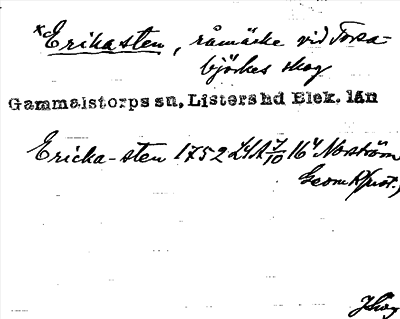 ×Erikasten, råmärke vid Torsa-
björkes skog
Gammalstorps sn, Listers hd Blek. län
Ericka-sten 1752 LSA 7/10 16⁴ Norström
Geom